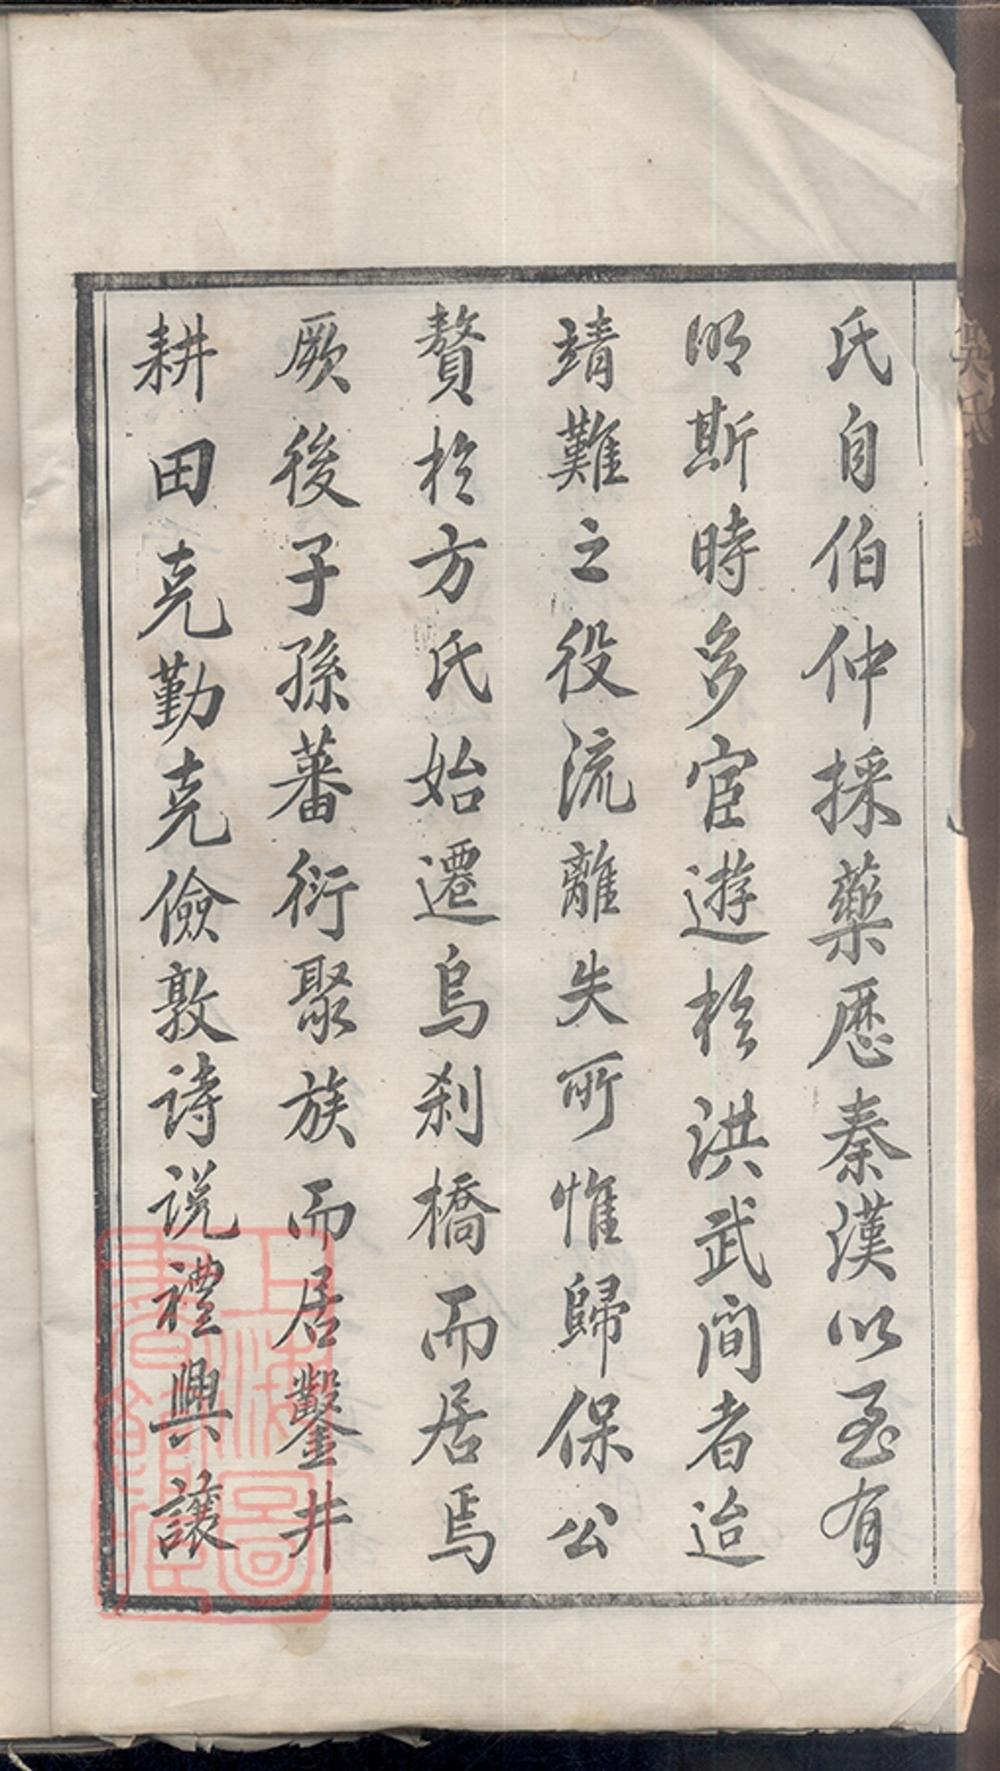 氏自伯仲採藥歷秦漢以至有
明斯時多宦遊於洪武間者迨
靖難之役流離失所惟歸保公
贅於方氏始遷烏剎橋而居焉
厥後子孫蕃衍聚族而居鑿井
耕田克勤克儉敦詩說禮興讓
上海圖
書館藏